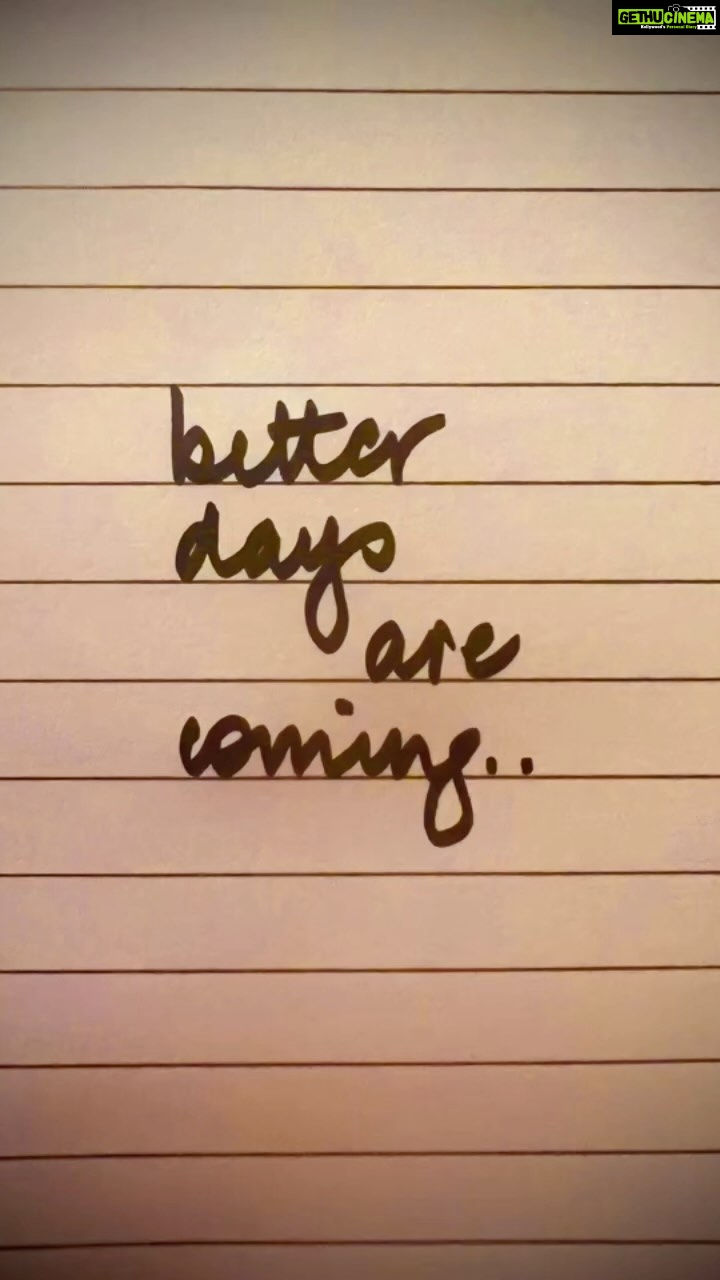 GETHUCINEMA
Kollywood's Personal Diary
better
days
are
coming..